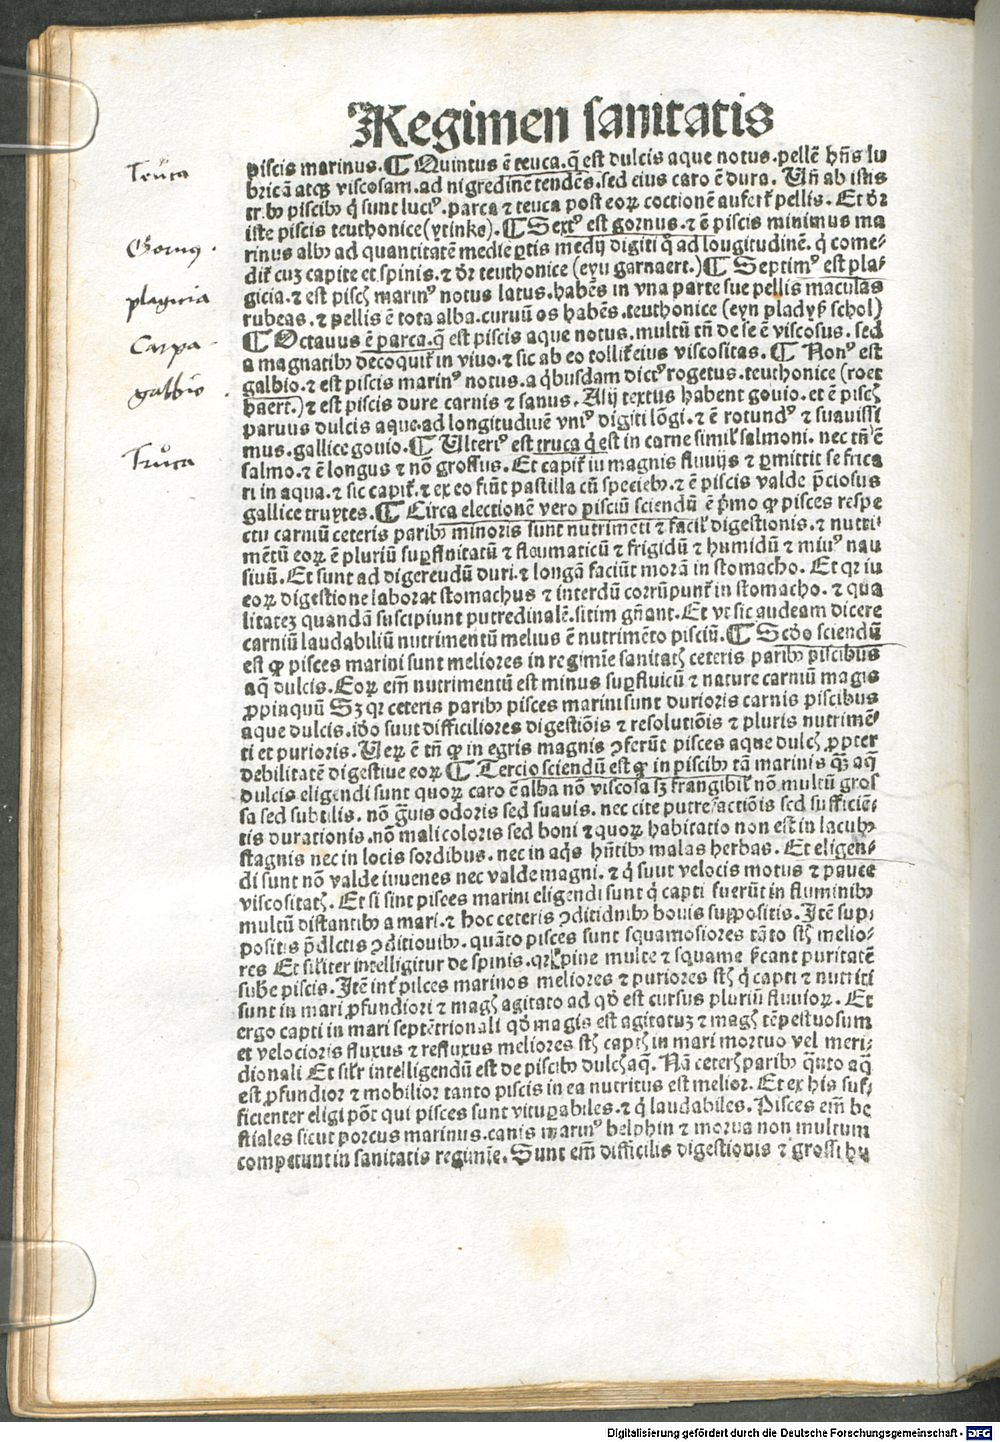 Regimen sanitatis
piscis marinus. ¶ Quintus ē teuca. q̄ est dulcis aque notus. pellē hn̄s lu
bricā atqꝫ viscosam. ad nigredinē tendēs. sed eius caro ē dura. Un̄ ab istis
tribꝰ piscibꝰ q̄ sunt luciꝰ. parca ⁊ teuca post eoꝝ coctionem aufert᷑ pellis. Et dr̄
iste piscis teuthonice (ytinke). ¶ Sextꝰ est gornus. ⁊ ē piscis minimus ma
rinus albꝰ ad quantitatē medie ꝑtis medij digiti qͥ ad lougitudinē. q̄ come-
dit᷑ cuꝫ capite et spinis. ⁊ dr̄ teuthonice (eyu garnaert.) ¶ Septimꝰ est pla-
gicia. ⁊ est piscꝭ marinꝰ notus latus. habēs in vna parte sue pellis maculas
rubeas. ⁊ pellis ē tota alba. curuū os habēs. teuthonice (eyn pladyß schol)
¶ Octauus ē parca. q̄ est piscis aque notus. multū tn̄ de se ē viscosus. sed
a magnatibꝰ decoquit᷑ in vino. ⁊ sic ab eo tollit᷑ eius viscositas. ¶ Nonꝰ est
galbio. ⁊ est piscis marinꝰ notus. a qͥbusdam dictꝰ rogetus. teuthonice (roet
baert.) ⁊ est piscis dure carnis ⁊ sanus. Alij textus habent gouio. et ē piscꝭ
paruus dulcis aque. ad longitudinē vniꝰ digiti lōgi. ⁊ ē rotundꝰ ⁊ suauissi
mus. gallice gouio. ¶ Ulteriꝰ est truca q̄ est in carne simil᷑ salmoni. nec tn̄ ē
salmo. ⁊ ē longus ⁊ nō grossus. Et capit᷑ iu magnis fluuijs ⁊ ꝑmittit se frica
ri in aqua. ⁊ sic capit᷑. ⁊ ex eo fiūt pastilla cū speciebꝰ. ⁊ ē piscis valde p̄ciosus
gallice truytes. ¶ Circa electionē vero pisciū sciendū ē pͥmo ꝙ pisces respe
ctu carniū ceteris paribꝰ minoris sunt nutrimēti ⁊ facil᷑ digestionis. ⁊ nutri-
mētū eoꝝ ē pluriū suꝑfluitatū ⁊ fleumaticū ⁊ frigidū ⁊ humidū ⁊ miuꝰ nau
siuū. Et sunt ad digereudū duri. ⁊ longā faciūt morā in stomacho. Et qr iu
eoꝝ digestione laborat stomachus ⁊ interdū corrūpunt᷑ in stomacho. ⁊ qua
litateꝫ quandā suscipiunt putredinalē. sitim gn̄ant. Et vt sic audeam dicere
carniū laudabiliū nutrimentū melius ē nutrimēto pisciū. ¶ Scd̄o sciendū
est ꝙ pisces marini sunt meliores in regimīe sanitatꝭ ceteris paribꝰ piscibus
aq̄ dulcis. Eoꝝ em̄ nutrimentū est minus suꝑfluicū ⁊ nature carniū magis
ꝓpinquū Sꝫ qr ceteris paribꝰ pisces marini sunt durioris carnis piscibus
aque dulcis. iō suut difficiliores digestiōis ⁊ resolutiōis ⁊ pluris nutrimē-
ti et purioris. Ueꝝ ē tn̄ ꝙ in egris magnis ꝯferūt pisces aque dulcꝭ ꝓpter
debilitatē digestiue eoꝝ ¶ Tercio sciendū est ꝙ in piscibꝰ tā marinis qꝫ aq̄
dulcis eligendi sunt quoꝝ caro ē alba nō viscosa sꝫ frangibil᷑ nō multū gros
sa sed subtilis. nō gͣuis odoris sed suauis. nec cite putrefactiōis sed sufficiē-
tis durationis. nō mali coloris sed boni ⁊ quoꝝ habitatio non est in lacubꝰ
stagnis nec in locis sordibus. nec in aq̄s hn̄tibꝰ malas herbas. Et eligen-
di sunt nō valde iuuenes nec valde magni. ⁊ q̄ suut velocis motus ⁊ pauce
viscositatꝭ. Et si sint pisces marini eligendi sunt q̄ capti fuerūt in fluminibꝰ
multū distantibꝰ a mari. ⁊ hoc ceteris ꝯditiōibꝰ bouis suppositis. Itē sup-
positis p̄dictis ꝯditiouibꝰ. quāto pisces sunt squamosiores tāto st̄ melio-
res Et sil᷑iter intelligitur de spinis. qr spine multe ⁊ squame p̄cant puritatē
sube piscis. Itē int᷑ pisces marinos meliores ⁊ puriores st̄ q̄ capti ⁊ nutriti
sunt in mari ꝓfundiori ⁊ magꝭ agitato ad qd̄ est cursus pluriū fluuioꝝ. Et
ergo capti in mari septētrionali qd̄ magis est agitatuꝫ ⁊ magꝭ tēpestuosum
et velocioris fluxus ⁊ refluxus meliores st̄ captꝭ in mari mortuo vel meri-
dionali Et sil᷑r intelligendū est de piscibꝰ dulcꝭ aq̄. Nā ceterꝭ paribꝰ qͣnto aq̄
est ꝓfundior ⁊ mobilior tanto piscis in ea nutritus est melior. Et ex his suf-
ficienter eligi pōt qui pisces sunt vituꝑabiles. ⁊ q̄ laudabiles. Pisces em̄ be
stiales sicut porcus marinus. canis marinꝰ belphin ⁊ morua non multum
competunt in sanitatis regimīe. Sunt em̄ difficilis digestionis ⁊ grossi hu
Teuca
Gornus.
plagicia
Carpa
galbio.
Truca
Digitalisierung gefördert durch die Deutsche Forschungsgemeinschaft - DFG